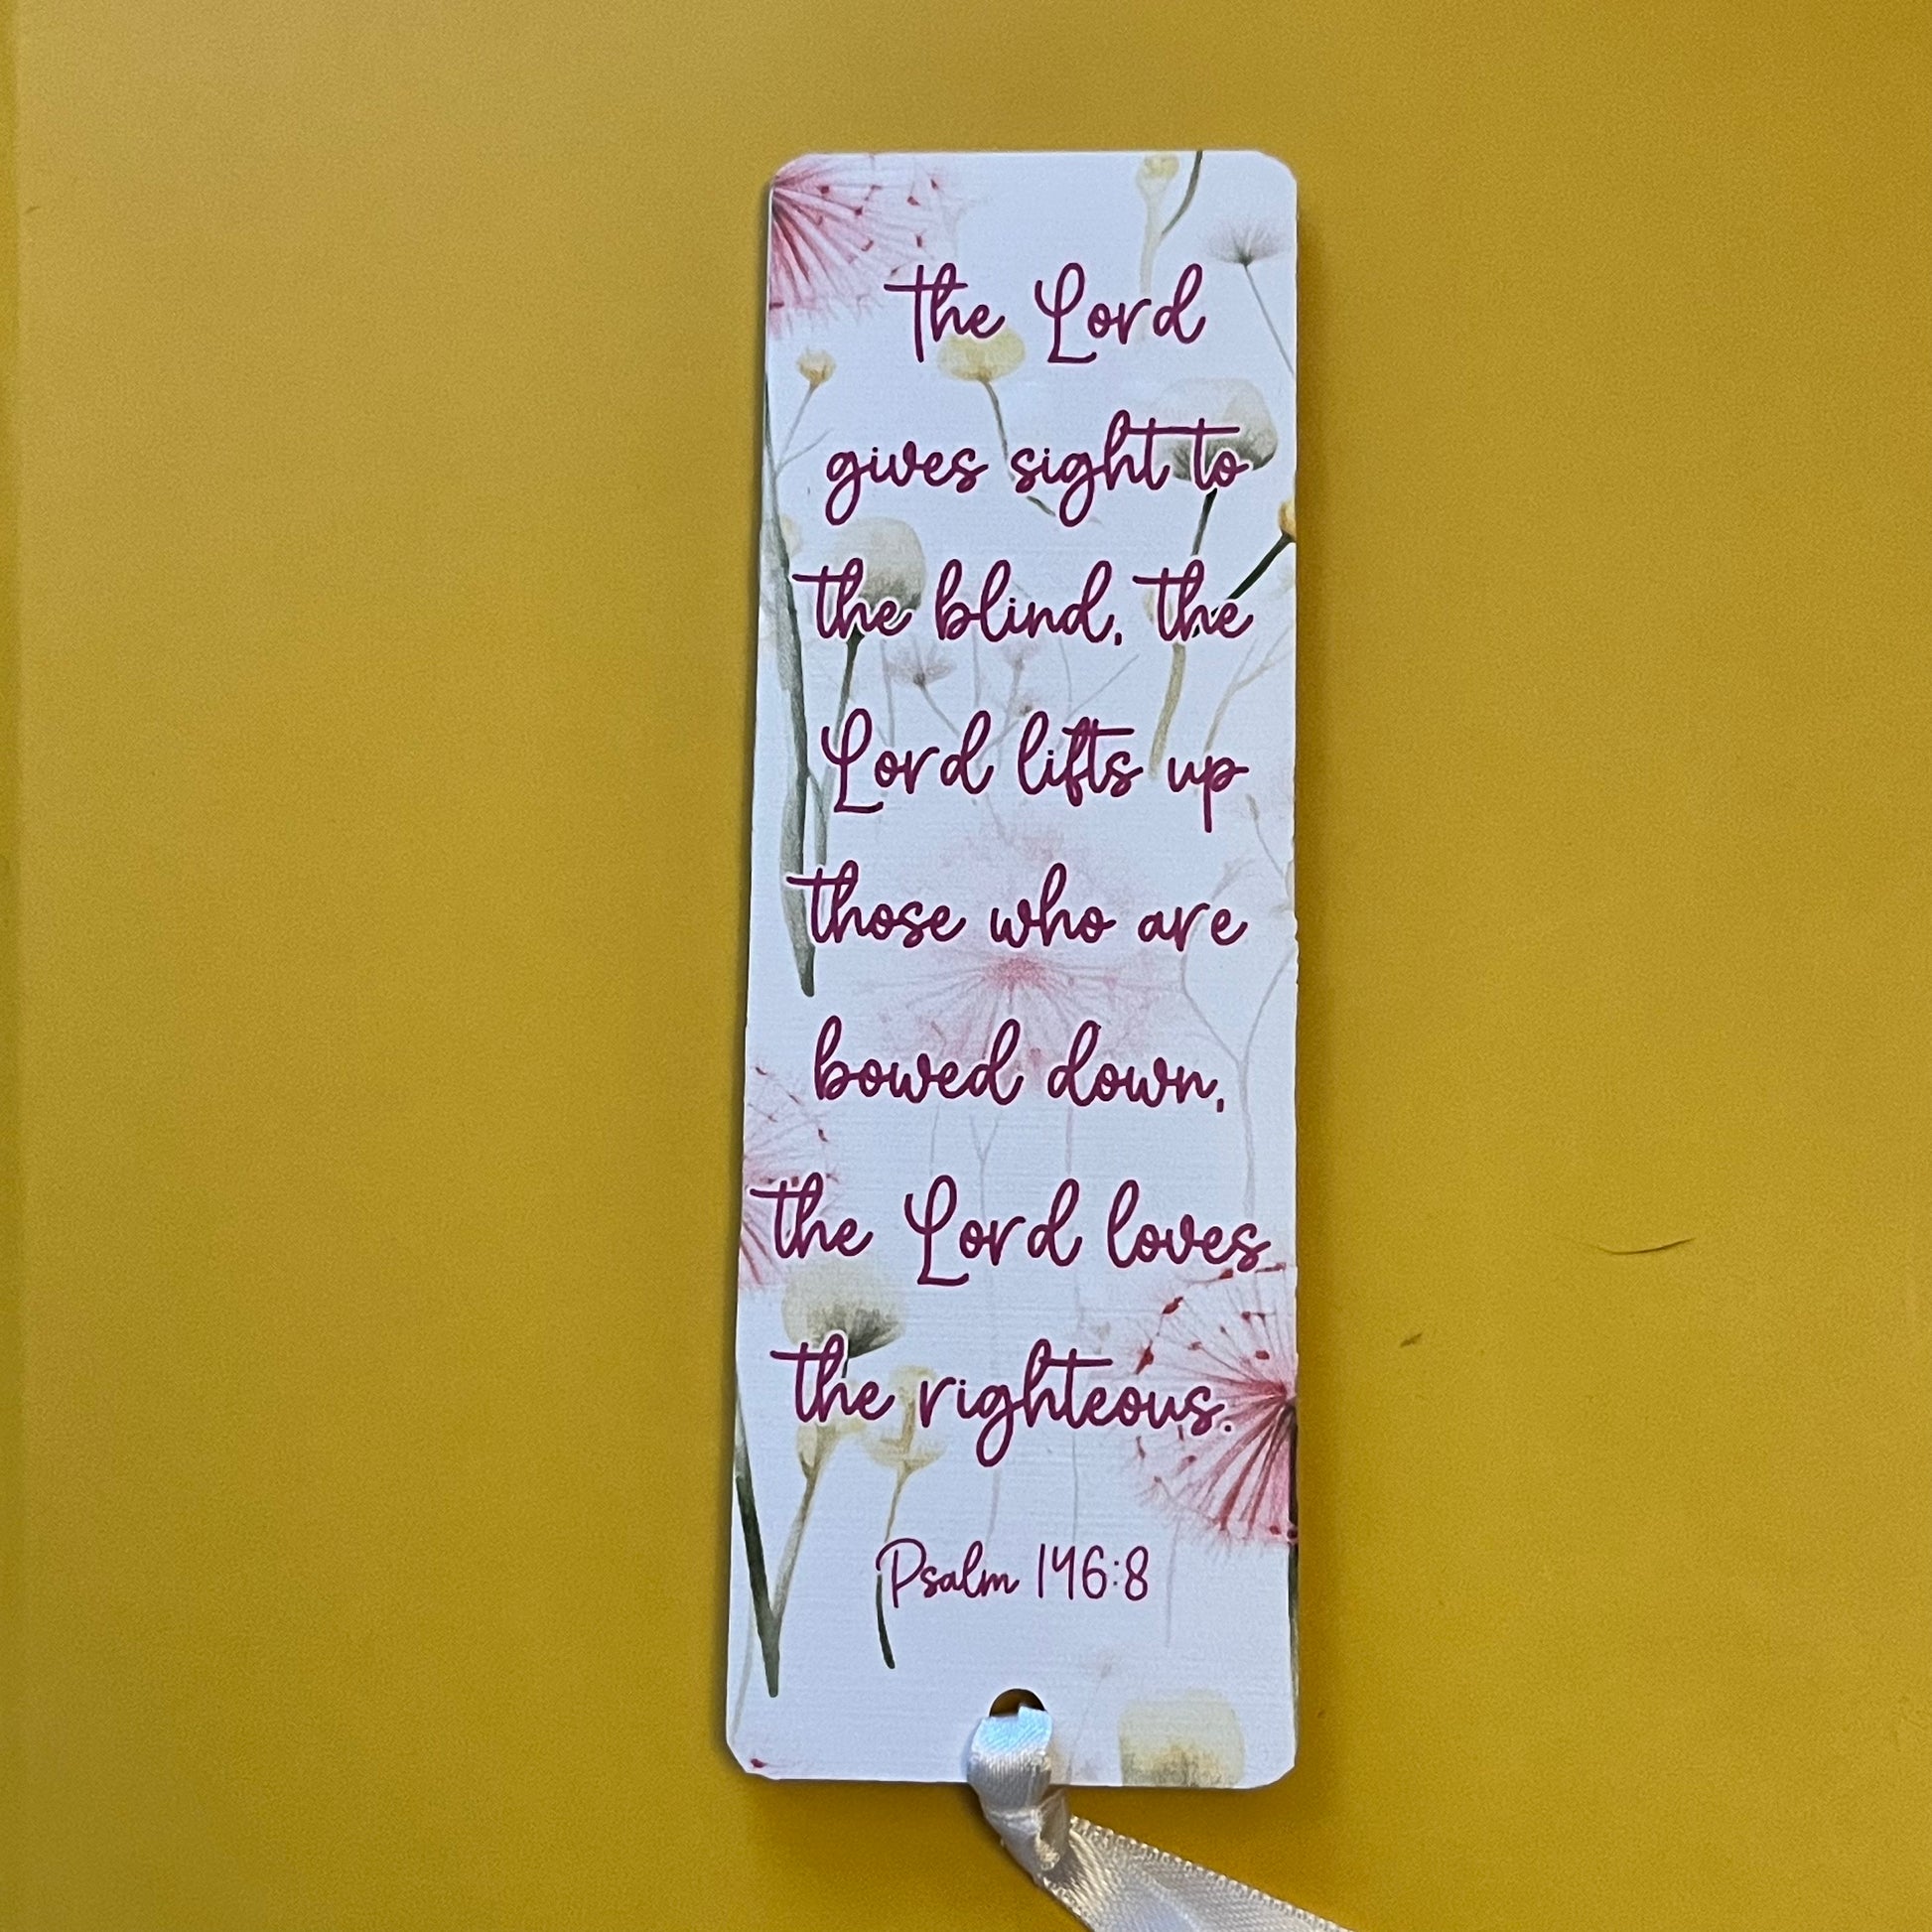 the Lord
gives sight to
the blind, the
Lord lifts up
those who are
bowed down,
the Lord loves
the righteous.
Psalm 146:8